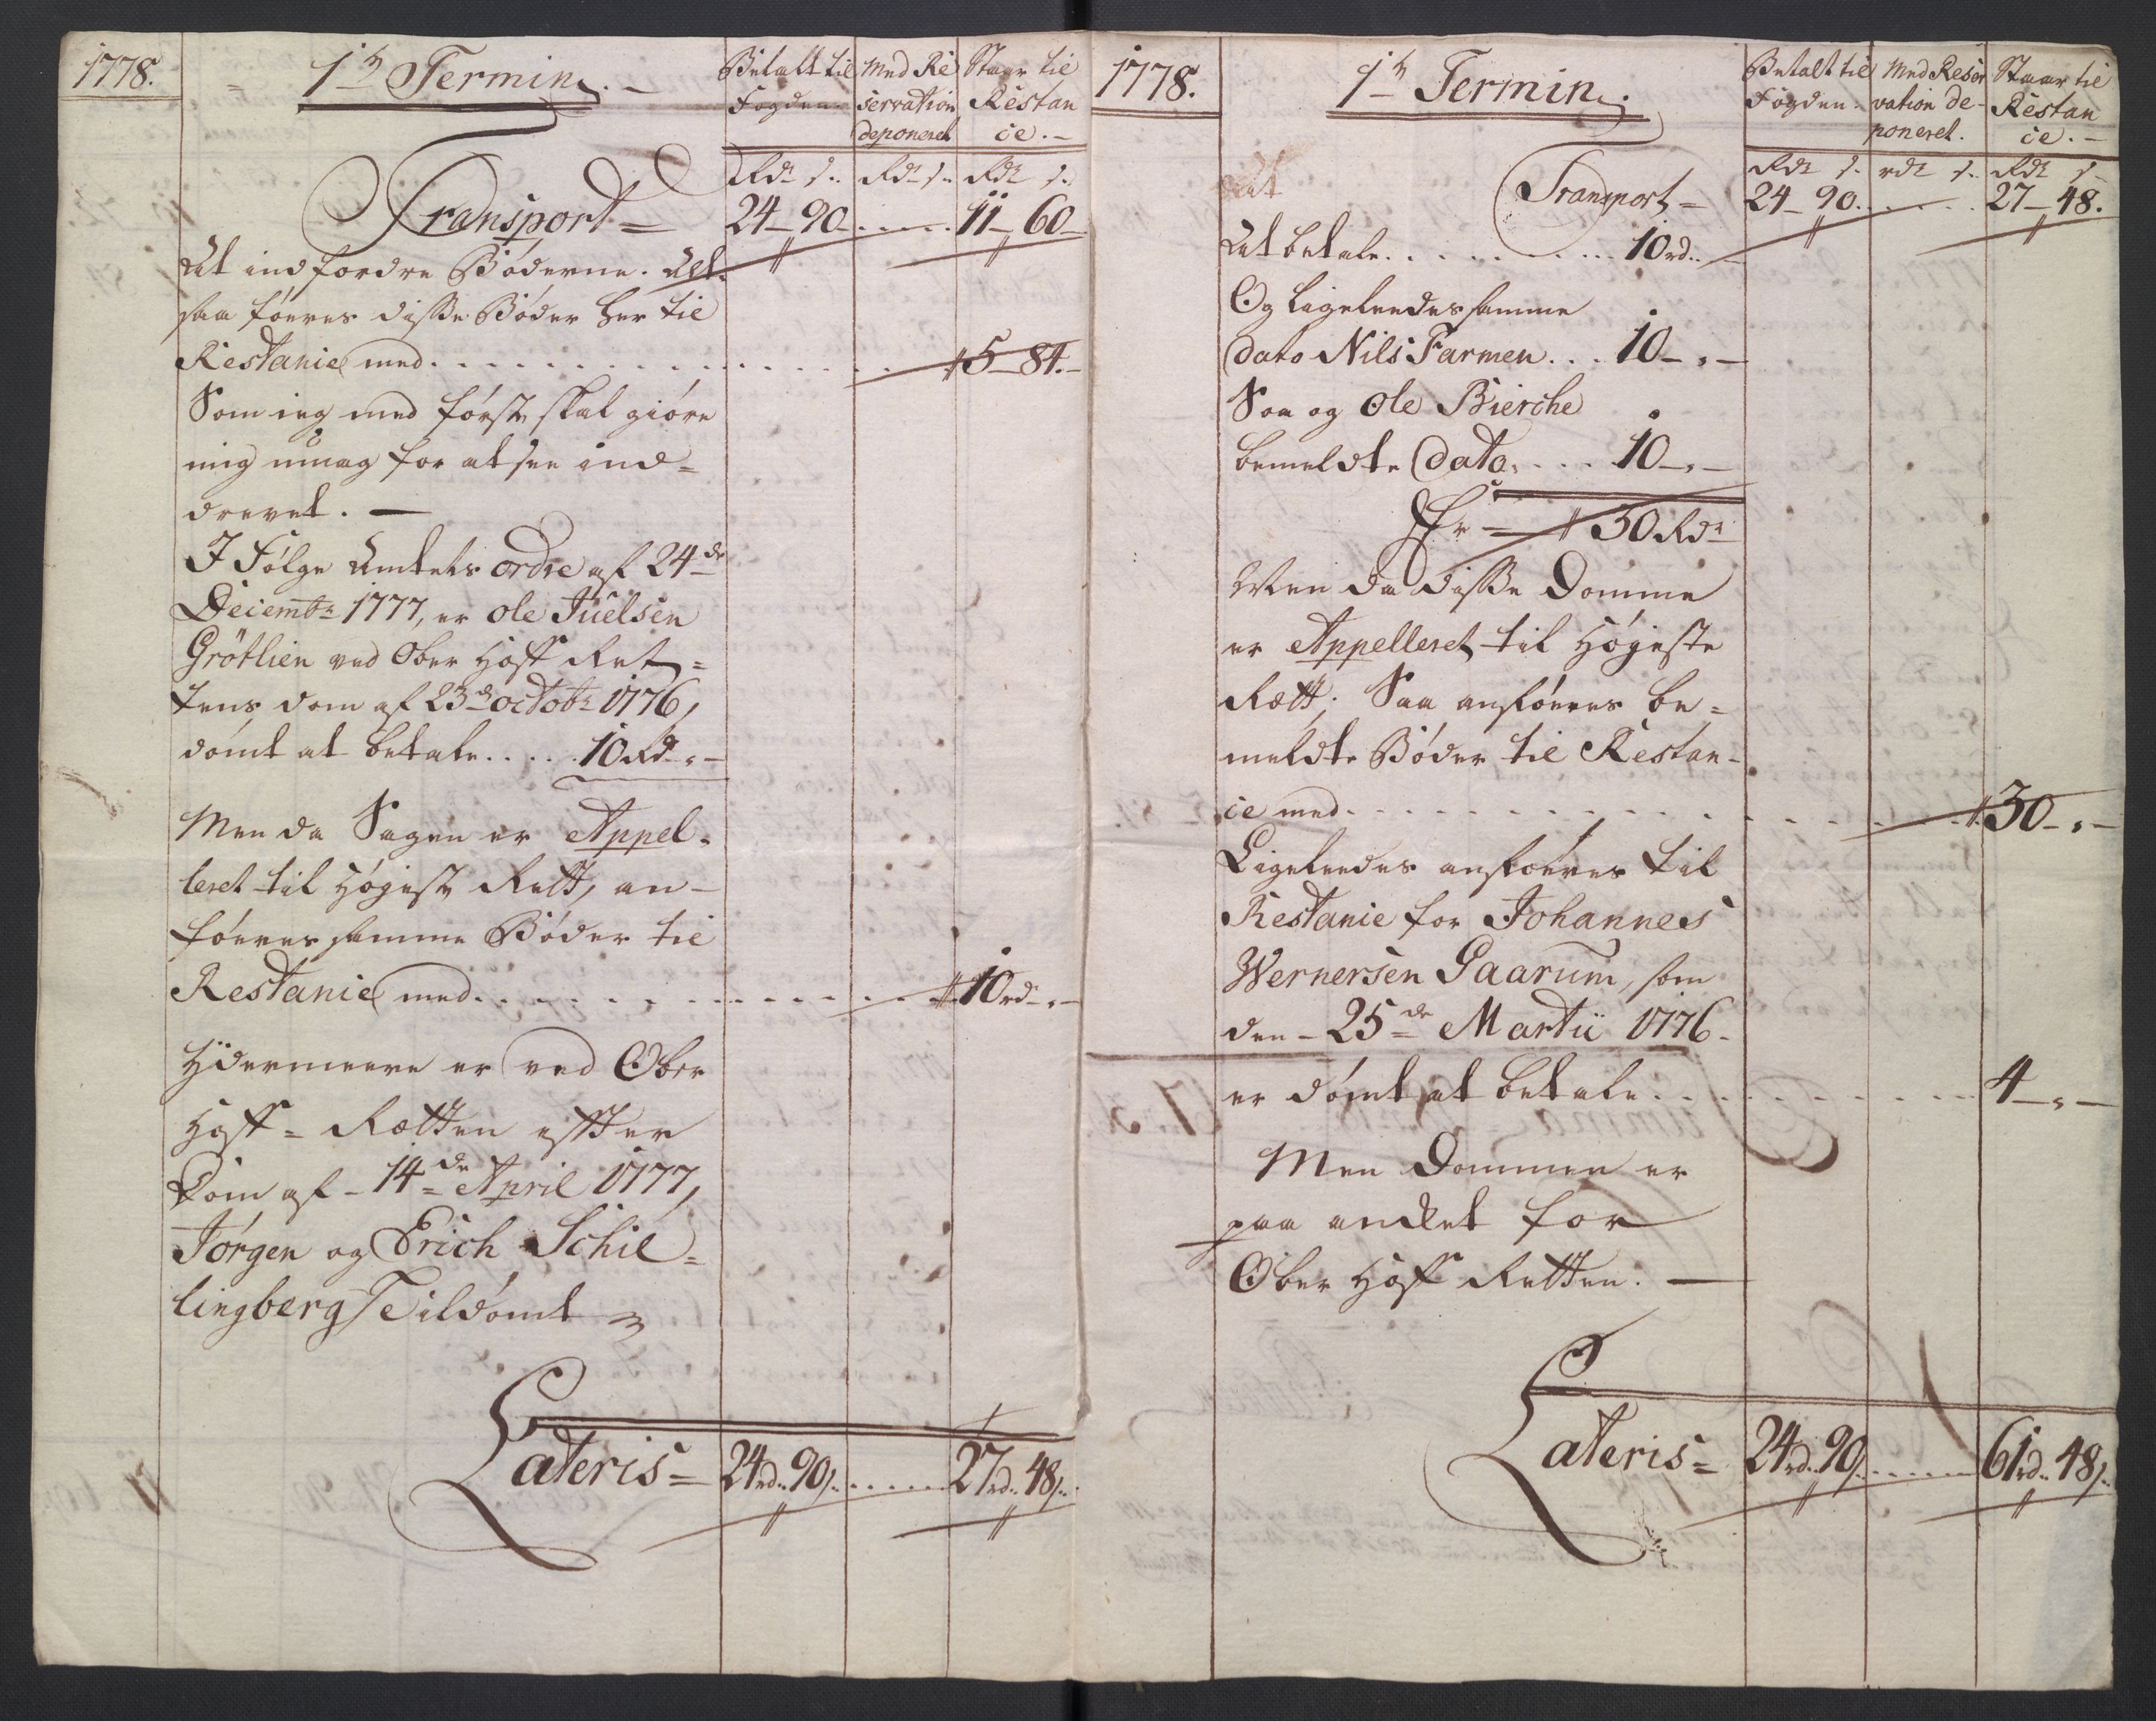 1778.
1te Termin.
Betalt til Fogden.
Med Reservation deponeret
Staar til Restance.
Rdr s. Rdr s. Rdr s.
Transport = 24 - 90 - . . . . . 11 - 60 -
At indfordre Bøderne. Alt-
saa føeres disse Bøder her til
Restance med . . . . . . . . . . 5 - 84. -
Som ieg med første skal giøre
mig umag for at see ind=
drevet. -
I Følge Amtets ordre af 24de
Decembr 1777, er Ole Juelsen
Grøtlien ved Ober Hoff Ret=
tens dom af 23de octobr 1776,
dømt at betale . . . . . 10 Rd - " -
Men da Sagen er Appel-
leret til Høyeste Rett, an-
føeres samme Bøder til
Restance med . . . . . . . . . . 10 rd - " -
Ydermeere er ved Ober
Hoff = Retten efter
Dom af - 14de April 1777,
Jørgen og Erich Schil=
lingberg Tildømt
Lateris = 24 rd. 90 s. . . . . . 27 rd. 48 s.
1778.
1te Termin.
Betalt til Fogden.
Med Reservation deponeret.
Staar til Restance. -
Rdr s. rdr s. Rdr s.
at
Transport = 24 - 90. . . . . . 27 - 48.
At betale . . . . . . . . . . 10 rd. -
Og ligeleedes samme
dato Nils Farmen . . . 10 - " -
Saa og Ole Bierche
bemeldte dato . . . . 10 - " -
Er = 30 Rdr
Men da disse Domme
er Appelleret til Høyeste
Rætt; Saa anføeres be=
meldte Bøder til Restan-
ce med . . . . . . . . . . 30 - " -
Ligeleedes anføeres til
Restance for Johannes
Wernersen Gaarum, som
den - 25de Martii 1776 -
er dømt at betale . . . . . . . . 4 - " -
Men Dommen er
paa anchet for
Ober Hoff Retten. -
Lateris = 24 rd. 90 s. . . . . . 61 rd. 48 s.